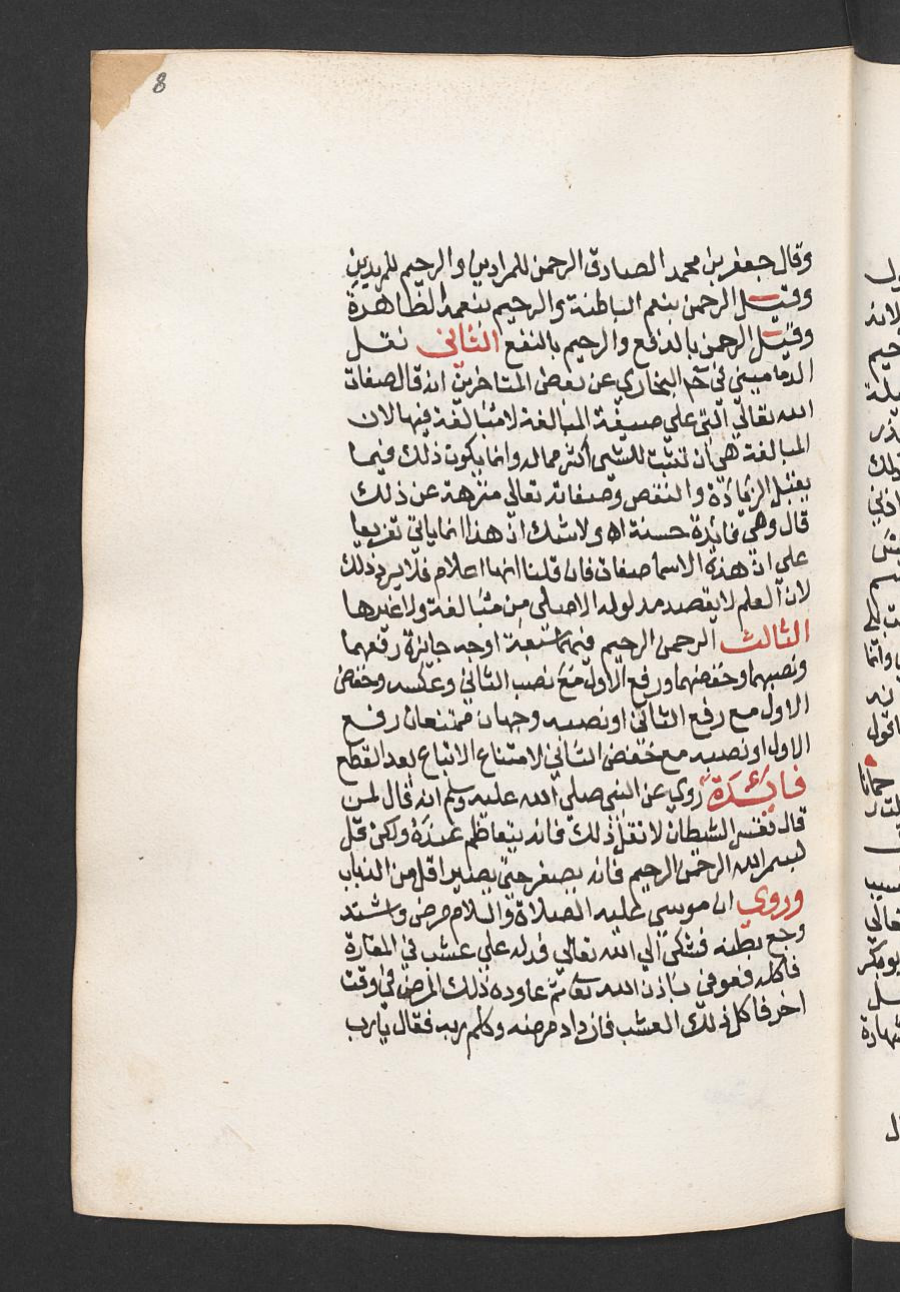 8
وقال جعفر بن محمد الصادق الرحمن للمرادين والرحيم للمريدين
وقيل الرحمن بنعم الباطنة والرحيم بنعمه الظاهرة
وقيل الرحمن بالدفع والرحيم بالنفع الثاني نقل
الدماميني في البخاري عن بعض المتاخرين انه قال صفات
الله تعالي التي علي صيغة المبالغة لا مبالغة فيها لان
المبالغة هي ان تثبت للشي اكثر مما له وانما يكون ذلك فيما
يقبل الزيادة والنقص وصفاته تعالي منزهة عن ذلك
قال وهي فائدة حسنة اه ولا شك ان هذا انما ياتي تفريعا
علي ان هذه الاسما صفات فان قلنا انها اعلام فلا يرد ذلك
لان العلم لا يقصد مدلوله الاصلي من مبالغة ولا غيرها
الثالث الرحمن الرحيم فيهما سبعة اوجه جائزة رفعهما
ونصبهما وخفضهما ورفع الاول مع نصب الثاني وعكسه وخفض
الاول مع رفع الثاني او نصبه وجهان ممتنعان رفع
الاول او نصبه مع خفض الثاني لامتناع الاتباع بعد القطع
فائدة روي عن النبي صلي الله عليه وسلم انه قال لمن
قال تعس الشيطان لا تقل ذلك فانه يتعاظم عنده ولكن قل
بسم الله الرحمن الرحيم فانه يصغر حتي يصير اقل من الذباب
وروي ان موسي عليه الصلاة والسلام مرض واشتد
وجع بطنه فشكي الي الله تعالي فدله علي عشب في المفازة
فاكله فعوفي باذن الله تعا ثم عاوده ذلك المرض في وقت
اخر فاكل ذلك العشب فازداد مرضه وكلم ربه فقال يا رب